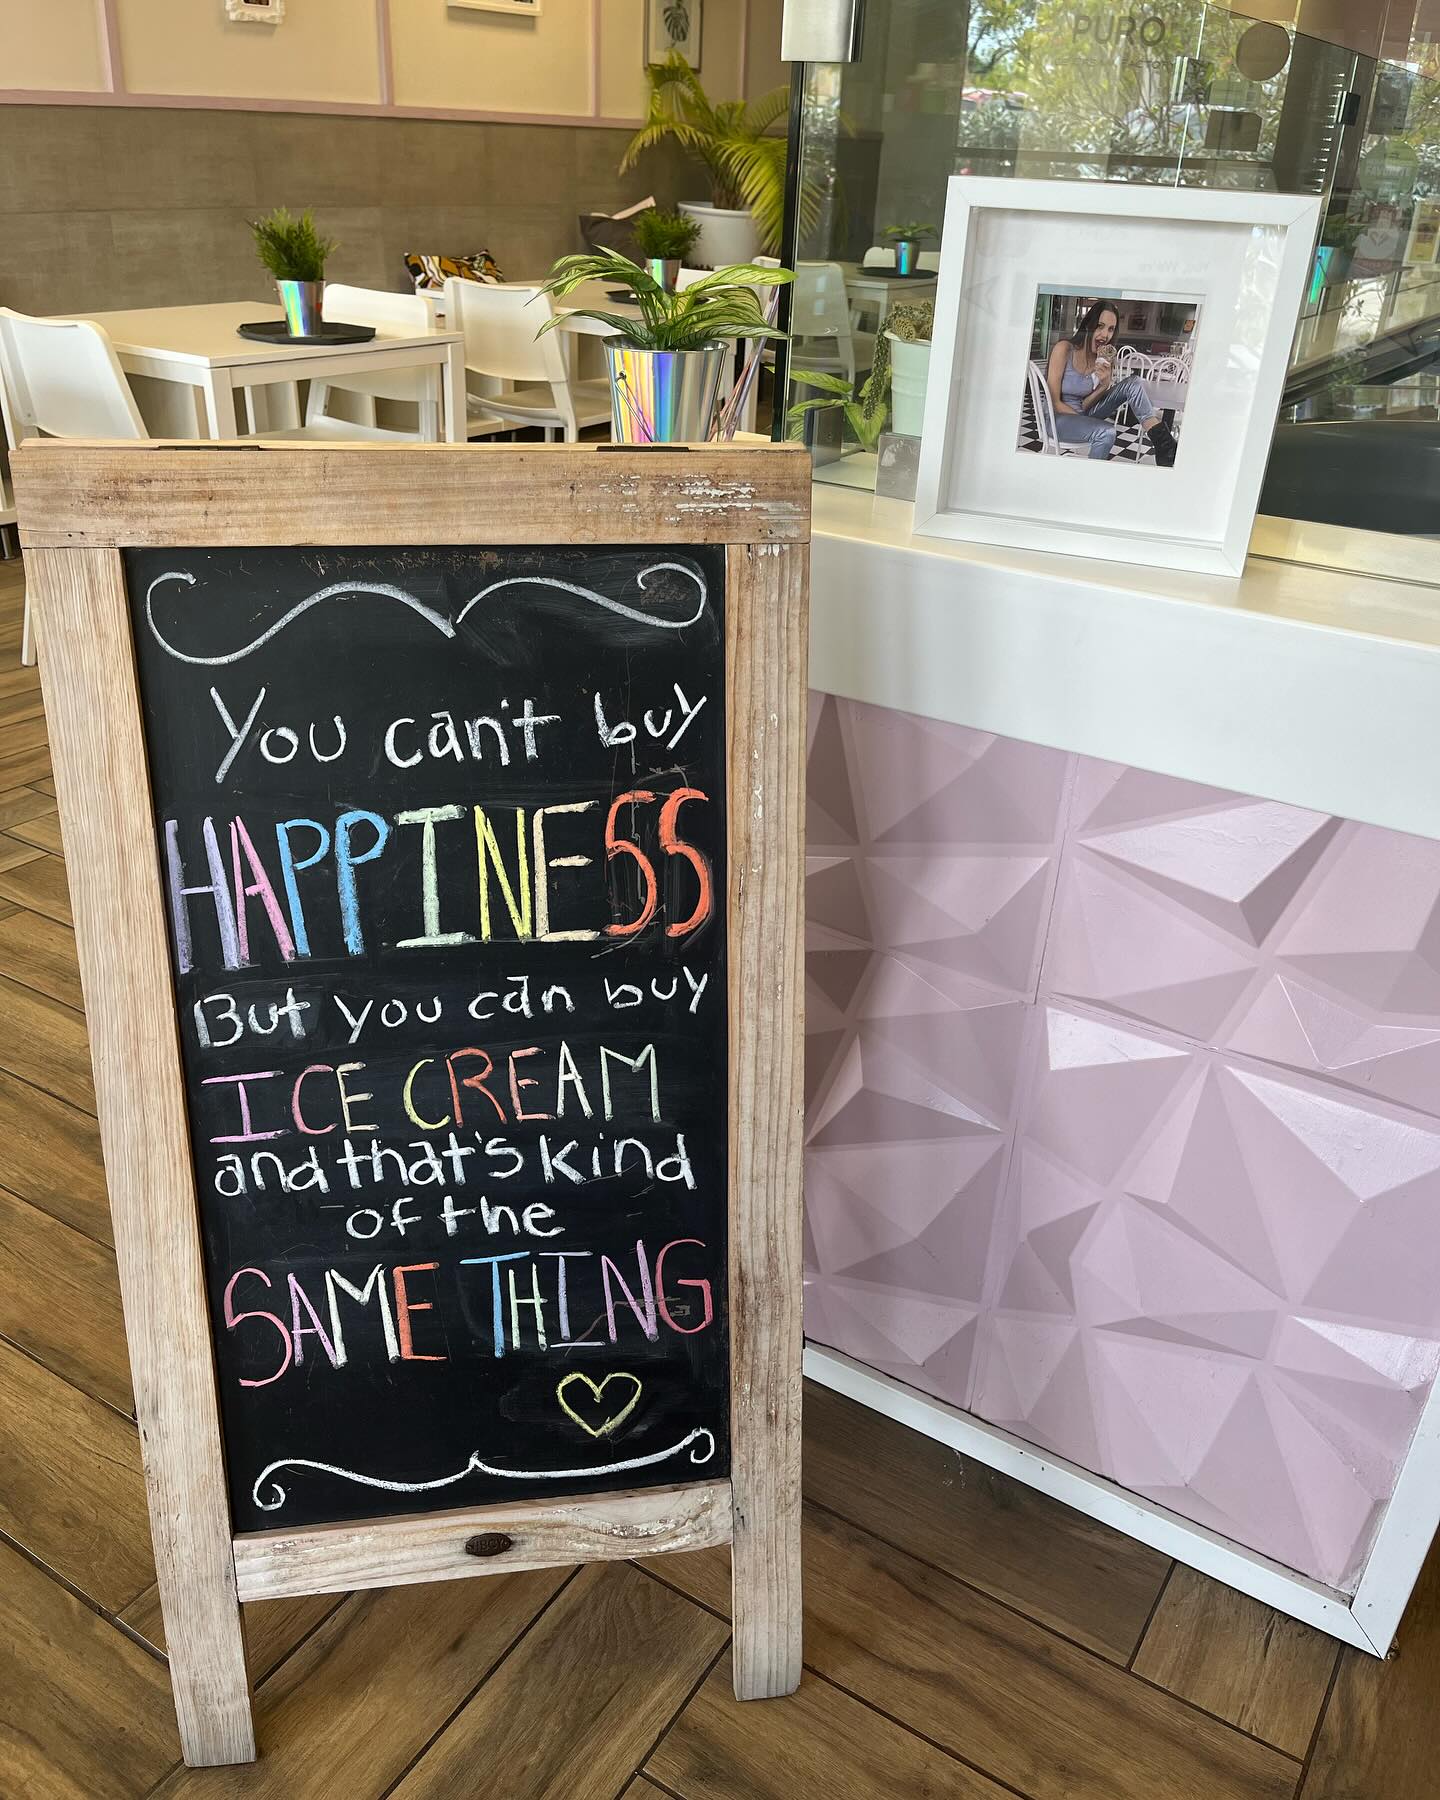 PURO
You can't buy
HAPPINESS
But you can buy
ICE CREAM
and that's kind
of the
SAME THING